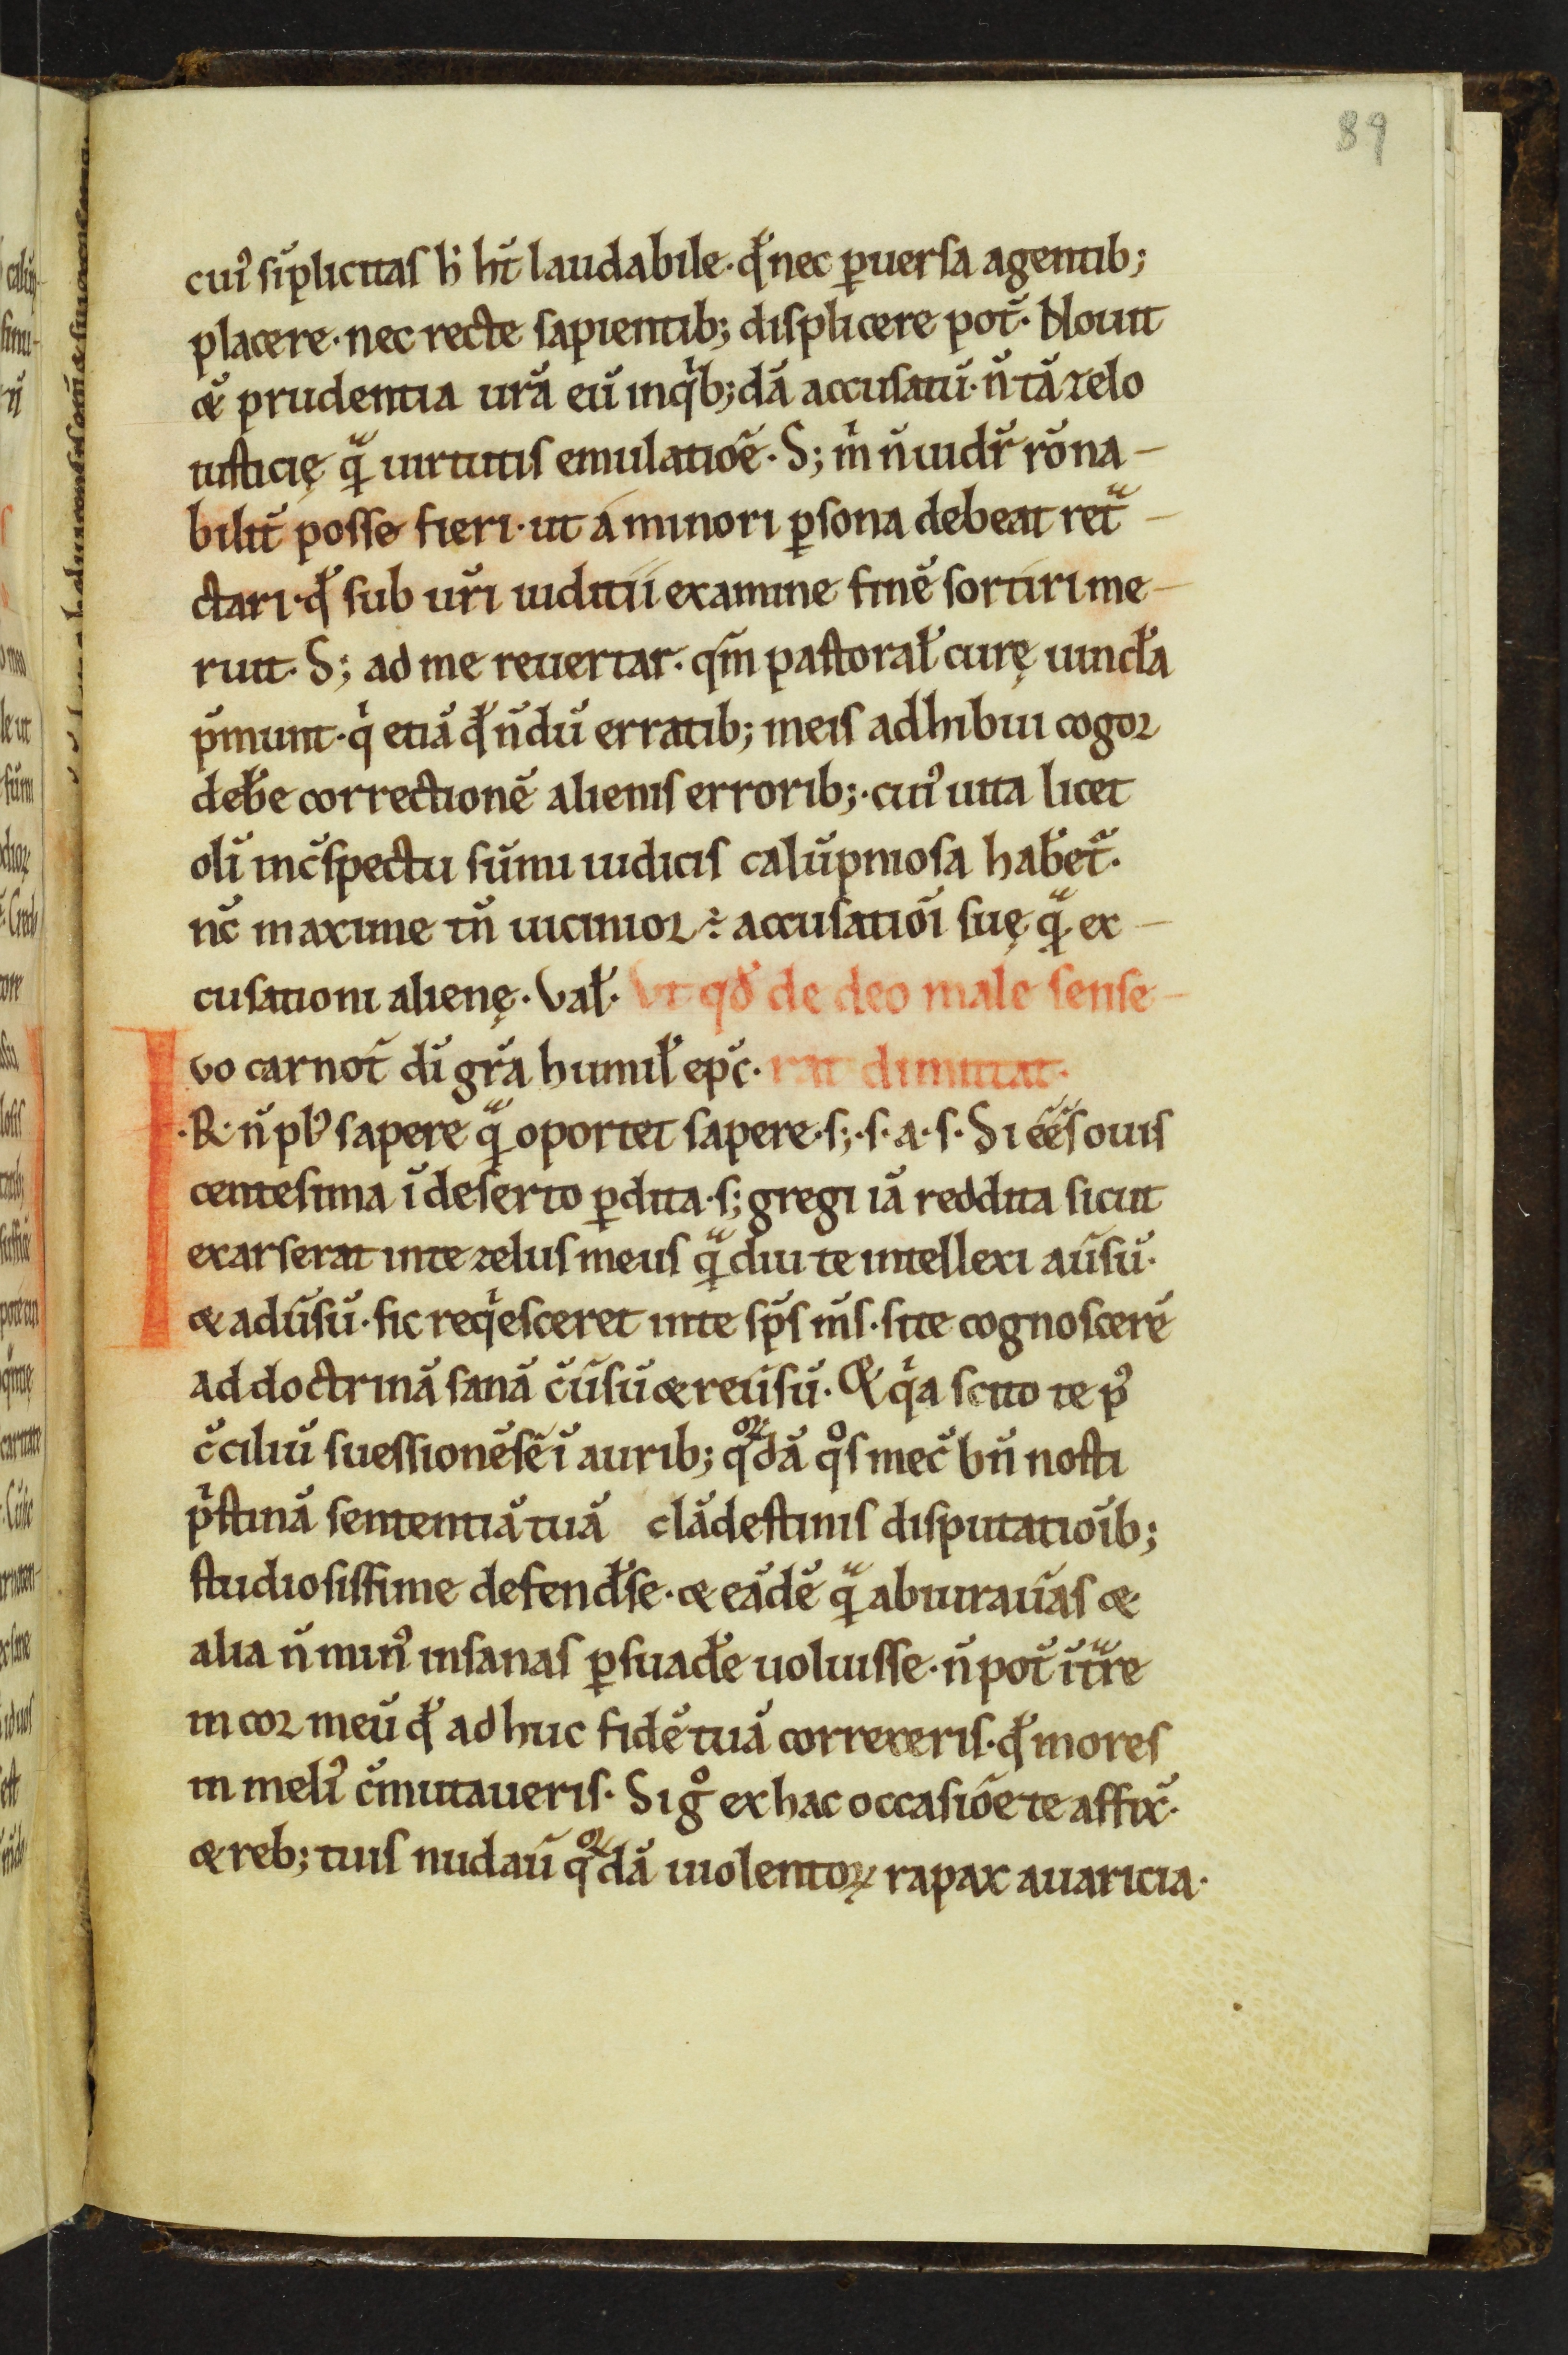 89
cuiꝰ sı̄plicitas h̅ hт̄ laudabile· qđ nec ꝑuersa agentib;
placere· nec recte sapientib; displicere pot̄· Nouit
&̄ prudentia ur̄a eū inqⁱb;dā accusatū· n̄ tā zelo
iusticię qᵃ̄ uirtutis emulatiōe· S; m̄ n̄ uidr̄ rōna-
bilit̄ posse fieri· ut a minori ꝑsona debeat retᵃ-
ctari· qđ sub ur̄i iuditii examine finē sortiri me-
ruit· S; ad me reuertar· qm̄ pastoral̄ curę uincl̄a
p̄munt· qⁱ etiā qđ n̄dū erratib; meis adhibui cogor
deb̄e correctionē alienis errorib;· cuiꝰ uita licet
olī inc̄spectu sūmi iudicis calūpniosa habet̄·
nc̄ maxime tn̄ uicinior ÷ accusatiōi suę qᵃ̄ ex-
cusationi alienę· Val̄· Vt qđ de deo male sense-
Ivo carnot̄ di̅ gr̄a humil̄ ep̄c· rat dimittat·
·R· n̄ plꝰ sapere qᵃ̄ oportet sapere· s;· s· a· s· Si ēēs ouis
centesima ī deserto ꝑdita· s; gregi iā reddita sicut
exarserat inte zelus meus qᵃ̄diu te intellexi aūsū·
& adūsū· sic reqⁱesceret inte sp̄s m̄s· site cognoscerē
ad doctrinā sanā c̄ūsū & reūsū· Q̄ qⁱa scito te pꝰ
c̄ciliū suessionēsē ī aurib; qꝛdā qͦs mec̄ bn̄ nosti
pⁱstinā sententiā tuā clādestinis disputatiōib;
studiosissime defend̄se· & eādē qᵃ̄ abiuraūas &
alia n̄ minꝰ insanas ꝑsuad̄e uoluisse· n̄ pot̄ ītᵃre
in cor meū qđ adhuc fidē tuā correxeris· qđ mores
in meliꝰ c̄mutaueris· Si gͦ ex hac occasiōe te affix̄·
& reb; tuis nudaū qꝛdā uiolentoꝝ rapax auaricia·